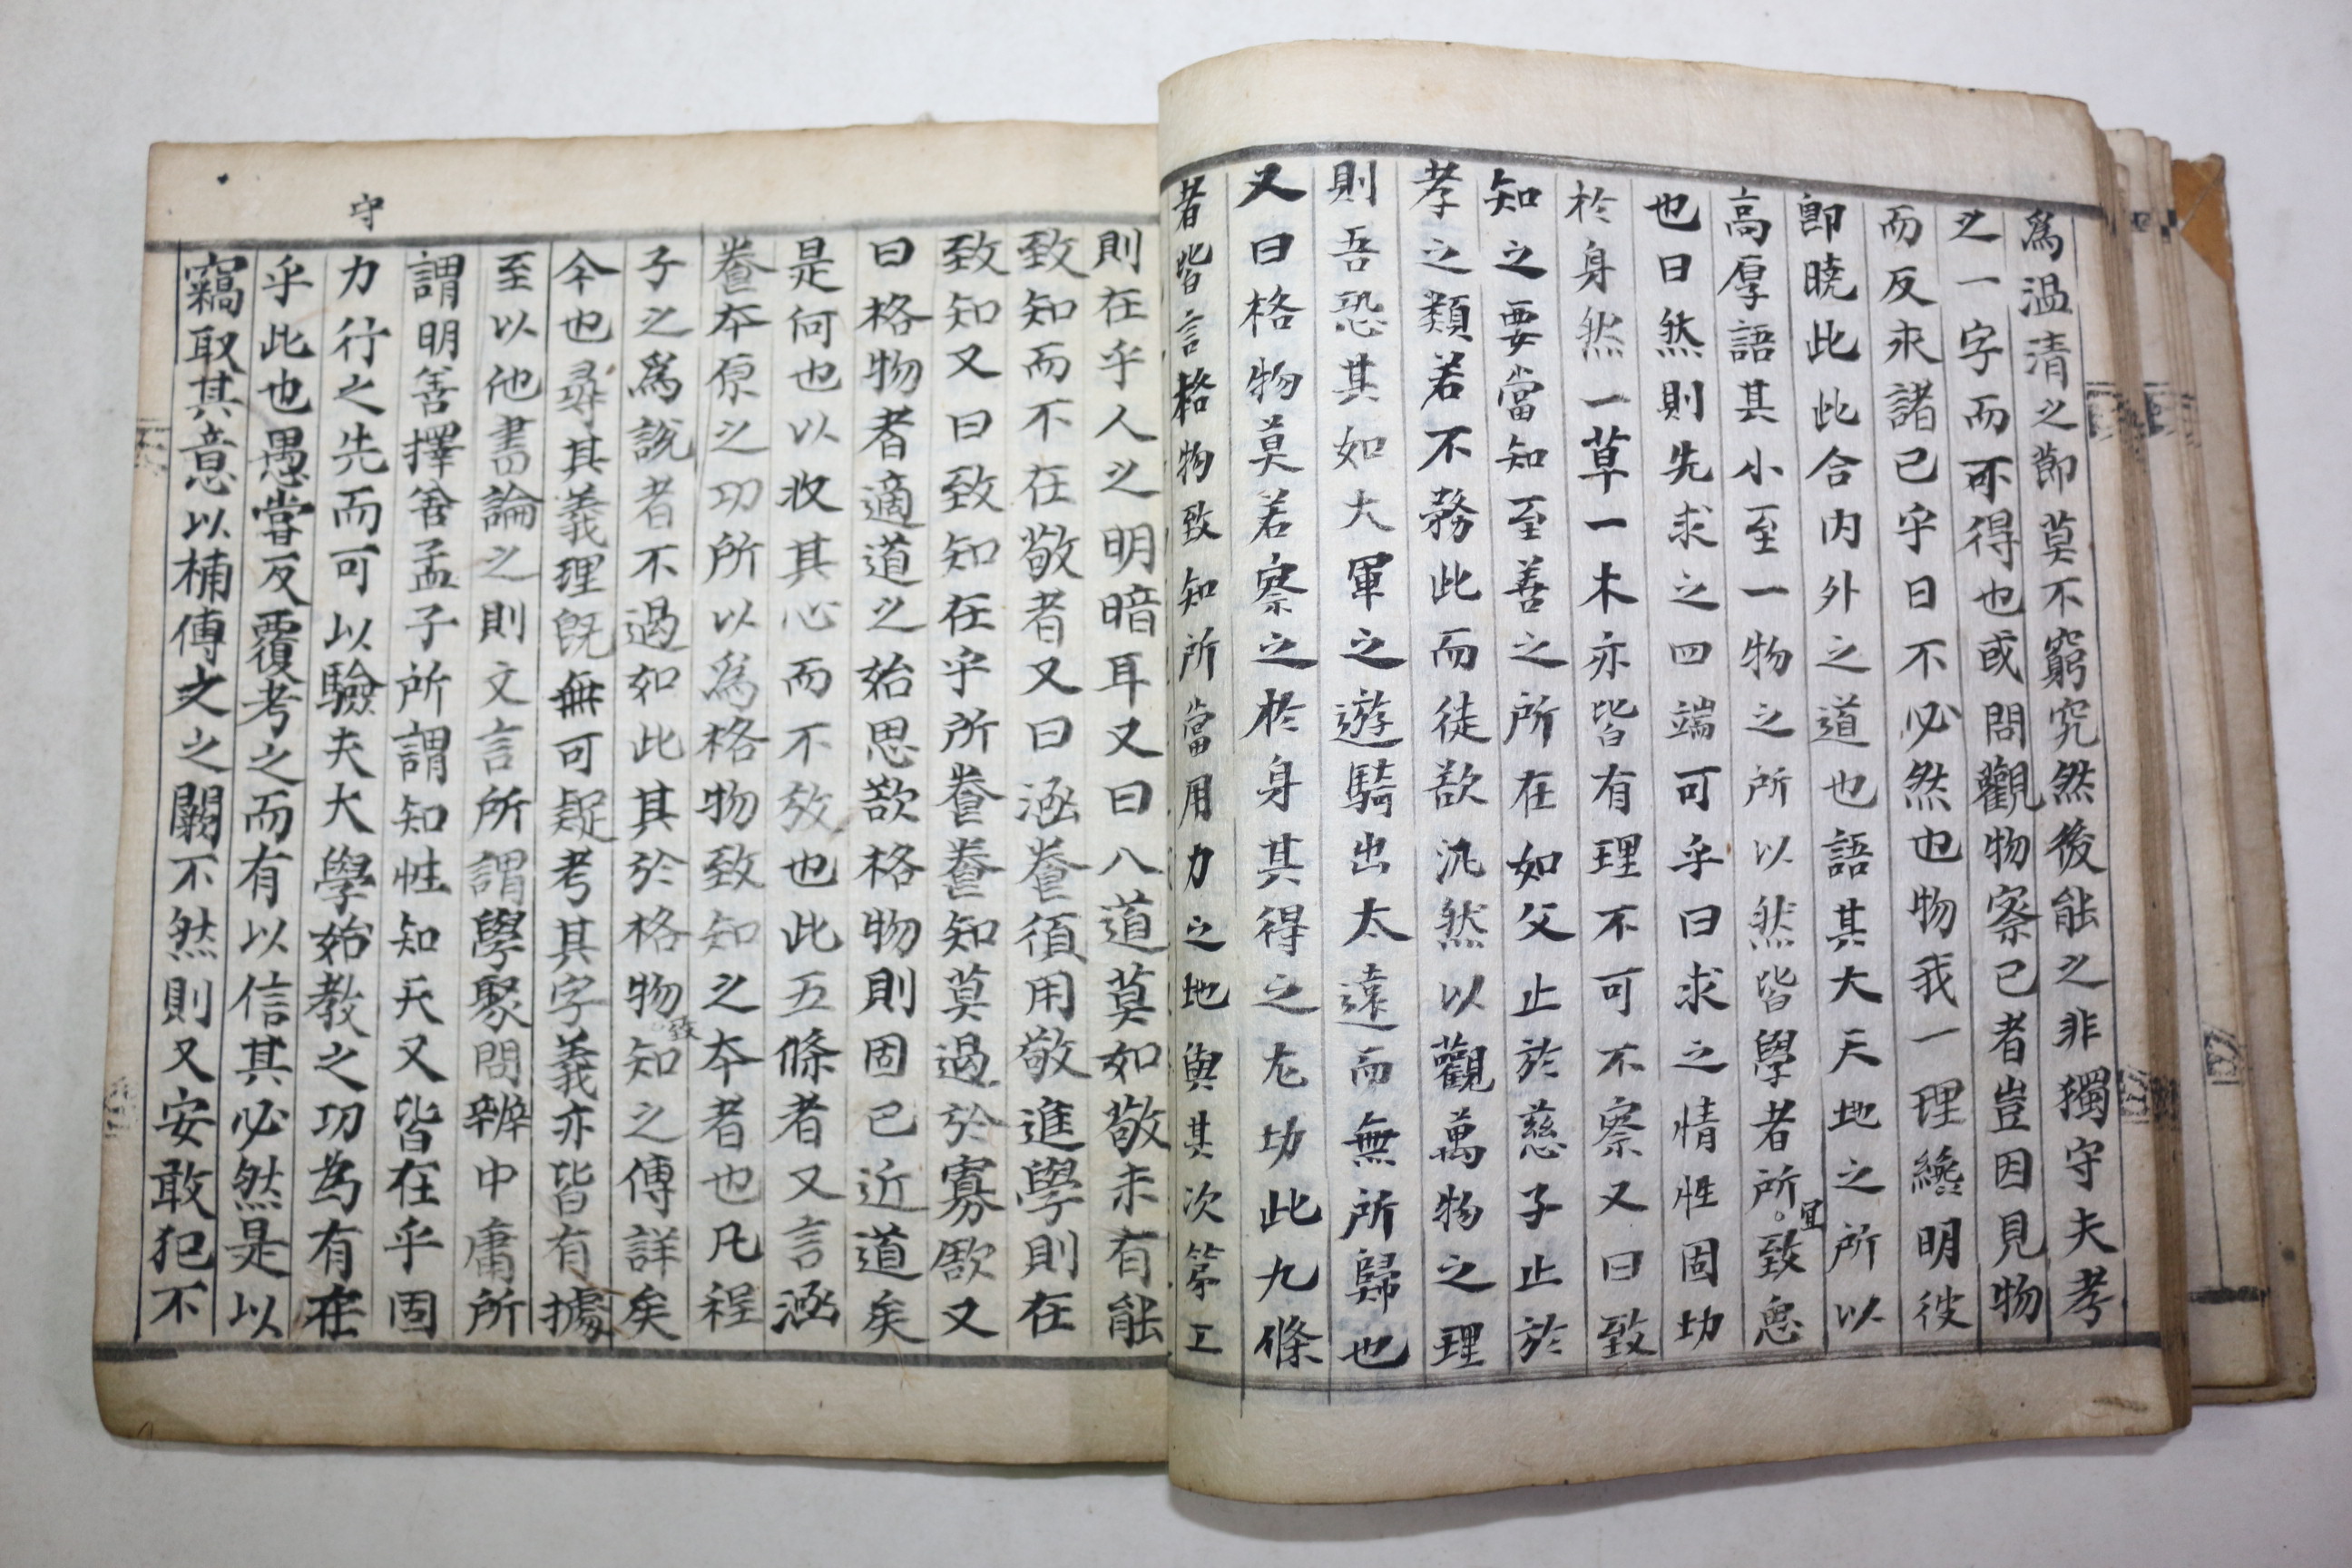 爲温清之節莫不窮究然後能之非獨守夫考
之一字而可得也或問觀物察已者豈因見物
而反求諸已乎曰不必然也物我一理纔明彼
即曉此此合內外之道也語其大天地之所以
高厚語其小至一物之所以然皆學者所宜致思
也曰然則先求之四端可乎曰求之情性固切
於身然一草一木亦皆有理不可不察又曰致
知之要當知至善之所在如父止於慈子止於
孝之類若不務此而徒欲汎然以觀萬物之理
則吾恐其如大軍之遊騎出太遠而無所歸也
又曰格物莫若察之於身其得之尤切此九條
者皆言格物致知所當用力之地與其次第工
則在乎人之明暗耳又曰入道莫如敬未有能
致知而不在敬者又曰涵養須用敬進學則在
致知又曰致知在乎所養養知莫過於寡欲又
曰格物者適道之始思欲格物則固已近道矣
是何也以收其心而不放也此五條者又言涵
養本原之功所以爲格物致知之本者也凡程
子之爲說者不過如此其於格物致知之傳詳矣
今也尋其義理旣無可疑考其字義亦皆有據
至以他書論之則文言所謂學聚問辨中庸所
謂明善擇善孟子所謂知性知天又皆在乎固
守
力行之先而可以驗夫大學始教之功為有在
乎此也愚嘗反覆考之而有以信其必然是以
竊取其意以補傳文之闕不然則又安敢犯不